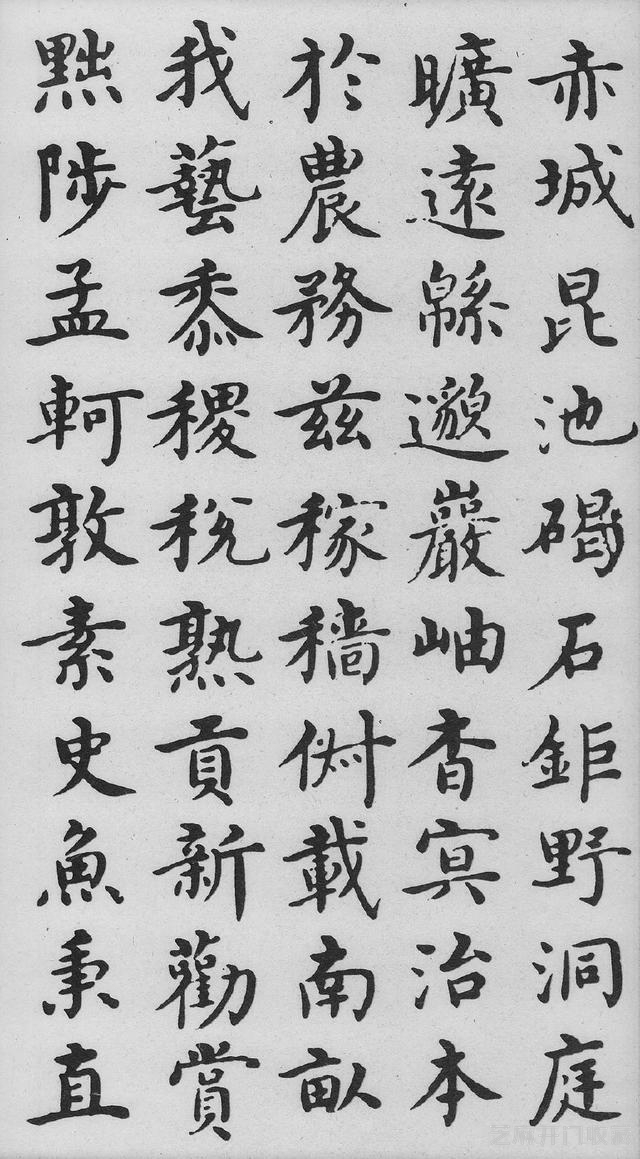 赤城昆池碣石鉅野洞庭
曠遠緜邈巖岫杳冥治本
於農務茲稼穡俶載南畝
我藝黍稷稅熟貢新勸賞
黜陟孟軻敦素史魚秉直
芝麻开门收藏